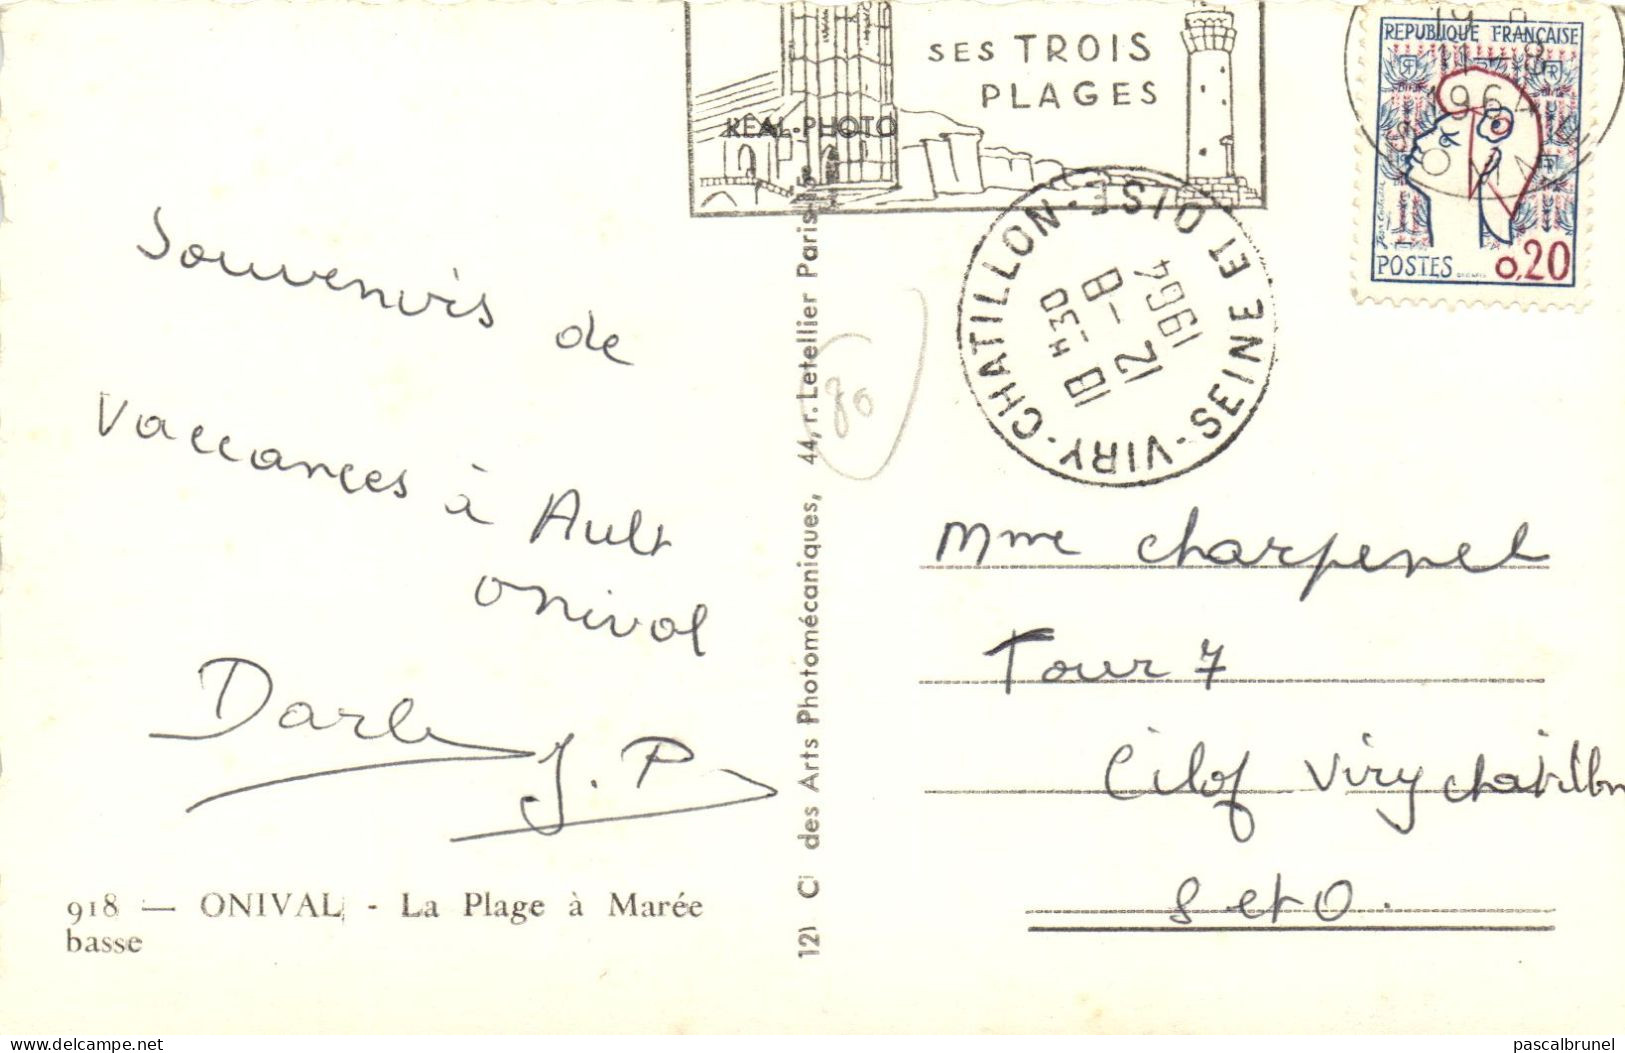 SES TROIS
PLAGES
REAL-PHOTO
REPUBLIQUE FRANÇAISE
POSTES 0,20
11-8
1964
VIRY-CHATILLON-SEINE ET OISE
18 H-30
12-8
1964
Souvenirs de
Vaccances à Ault
onival
J.P
80
Mme Charpenel
Tour 7
Cilof Viry chatillon
S et O.
918 — ONIVAL - La Plage à Marée
basse
des Arts Photomécaniques, 44, r. Letellier Paris-15e
delcampe.net
pascalbrunel